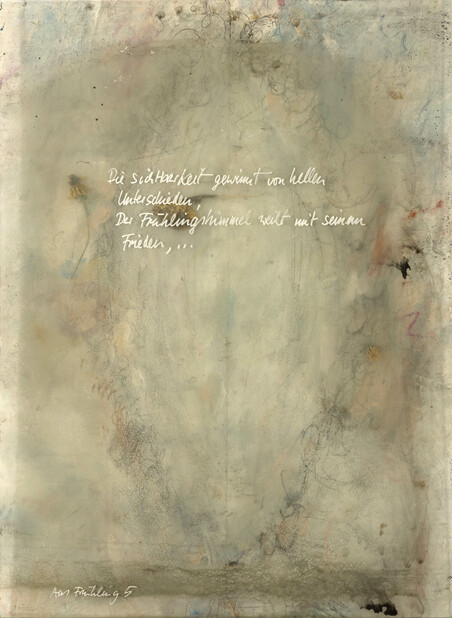 Die Sichtbarkeit gewinnt von hellen
Unterschieden,
Der Frühlingshimmel weilt mit seinem
Frieden,...
Aus Frühling 5